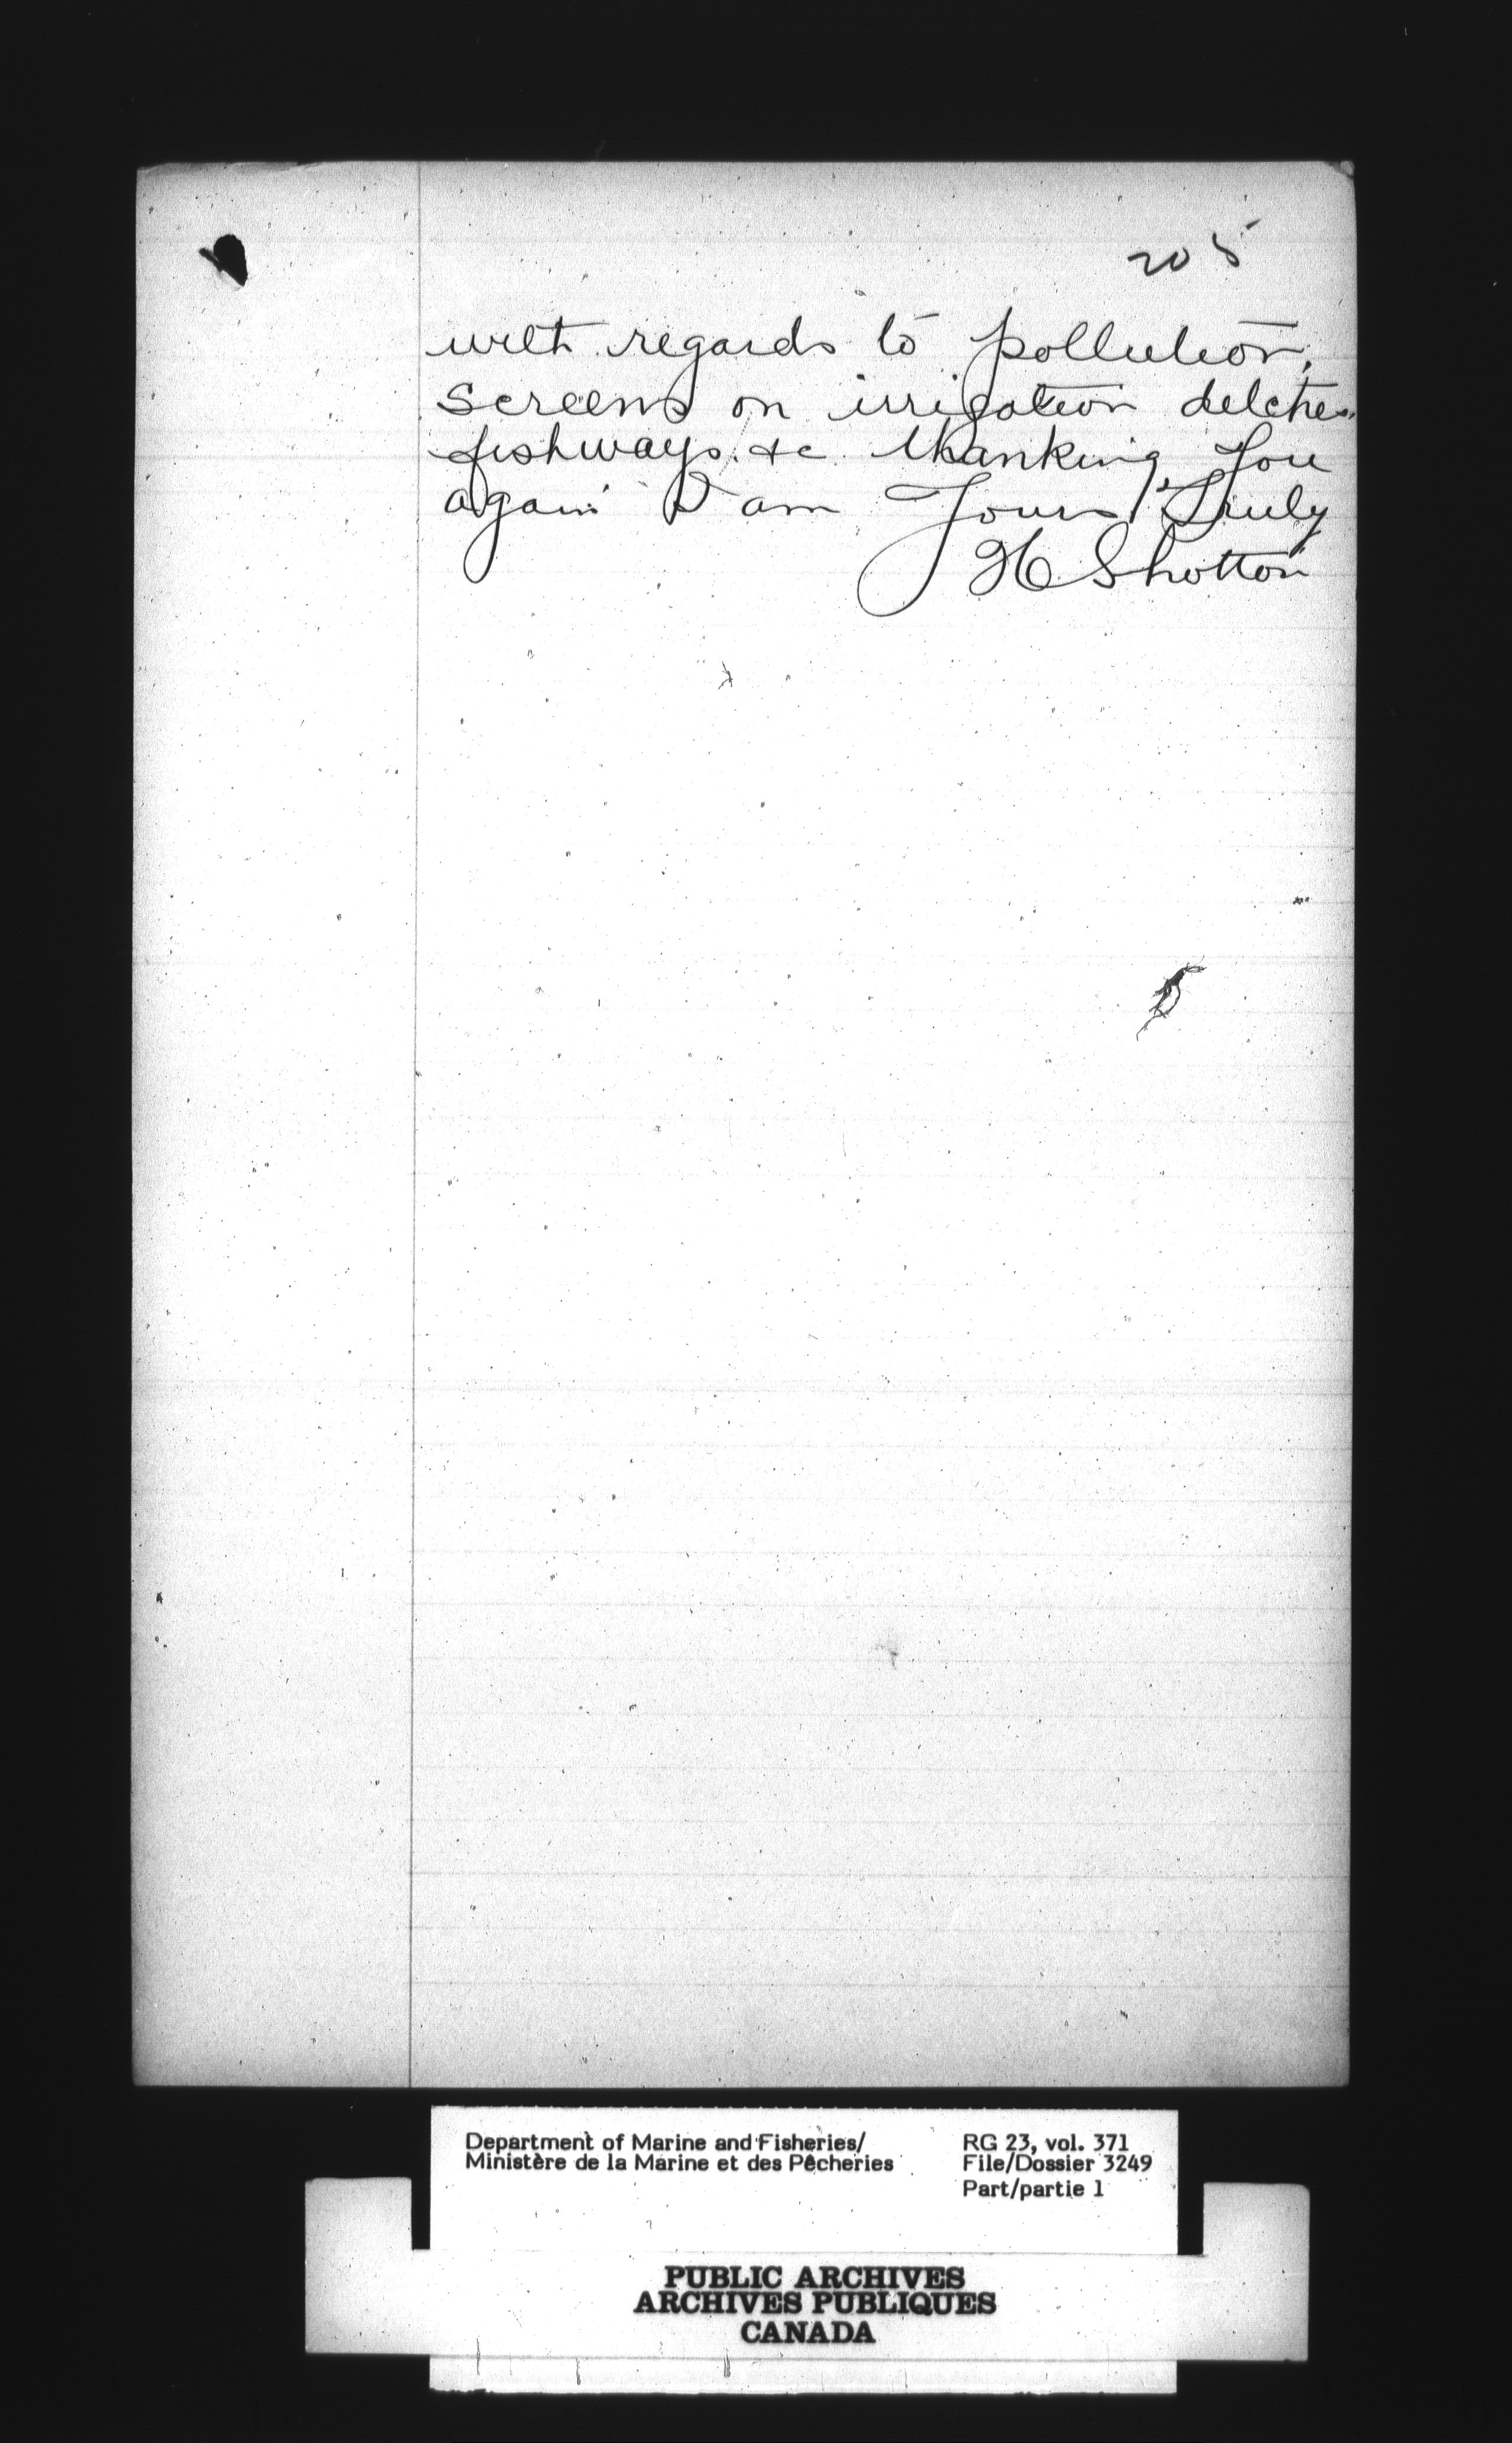 205
with regards to pollution,
screens on irrigation ditches
fishways. &c thanking You
again I am Yours Truly
H Shotton
Department of Marine and Fisheries/
Ministère de la Marine et des Pêcheries
RG 23, vol. 371
File/Dossier 3249
Part/partie 1
PUBLIC ARCHIVES
ARCHIVES PUBLIQUES
CANADA